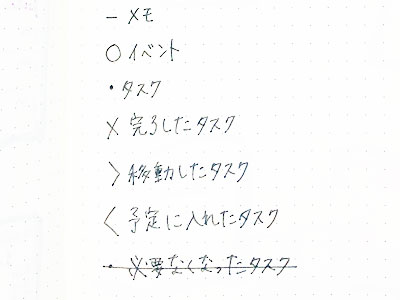 ― メモ
○ イベント
・ タスク
× 完了したタスク
> 移動したタスク
< 予定に入れたタスク
・ 必要なくなったタスク